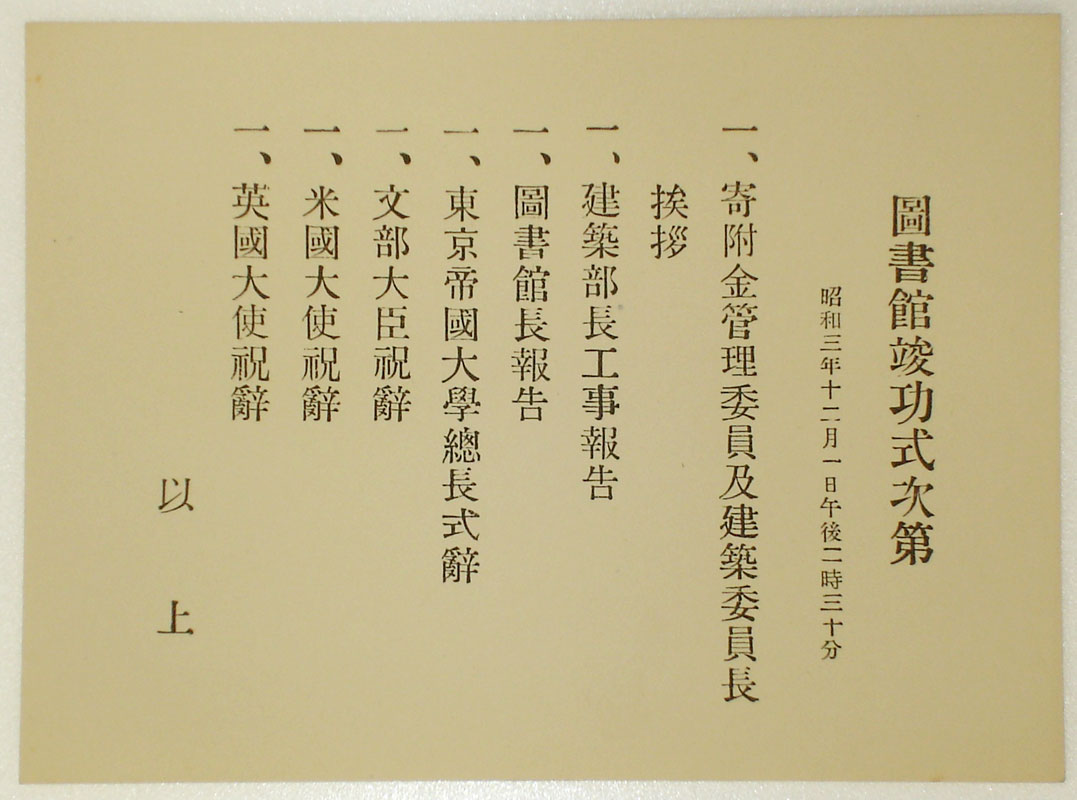 圖書館竣功式次第
昭和三年十二月一日午後二時三十分
一、寄附金管理委員及建築委員長
挨拶
一、建築部長工事報告
一、圖書館長報告
一、東京帝國大學總長式辭
一、文部大臣祝辭
一、米國大使祝辭
一、英國大使祝辭
以上